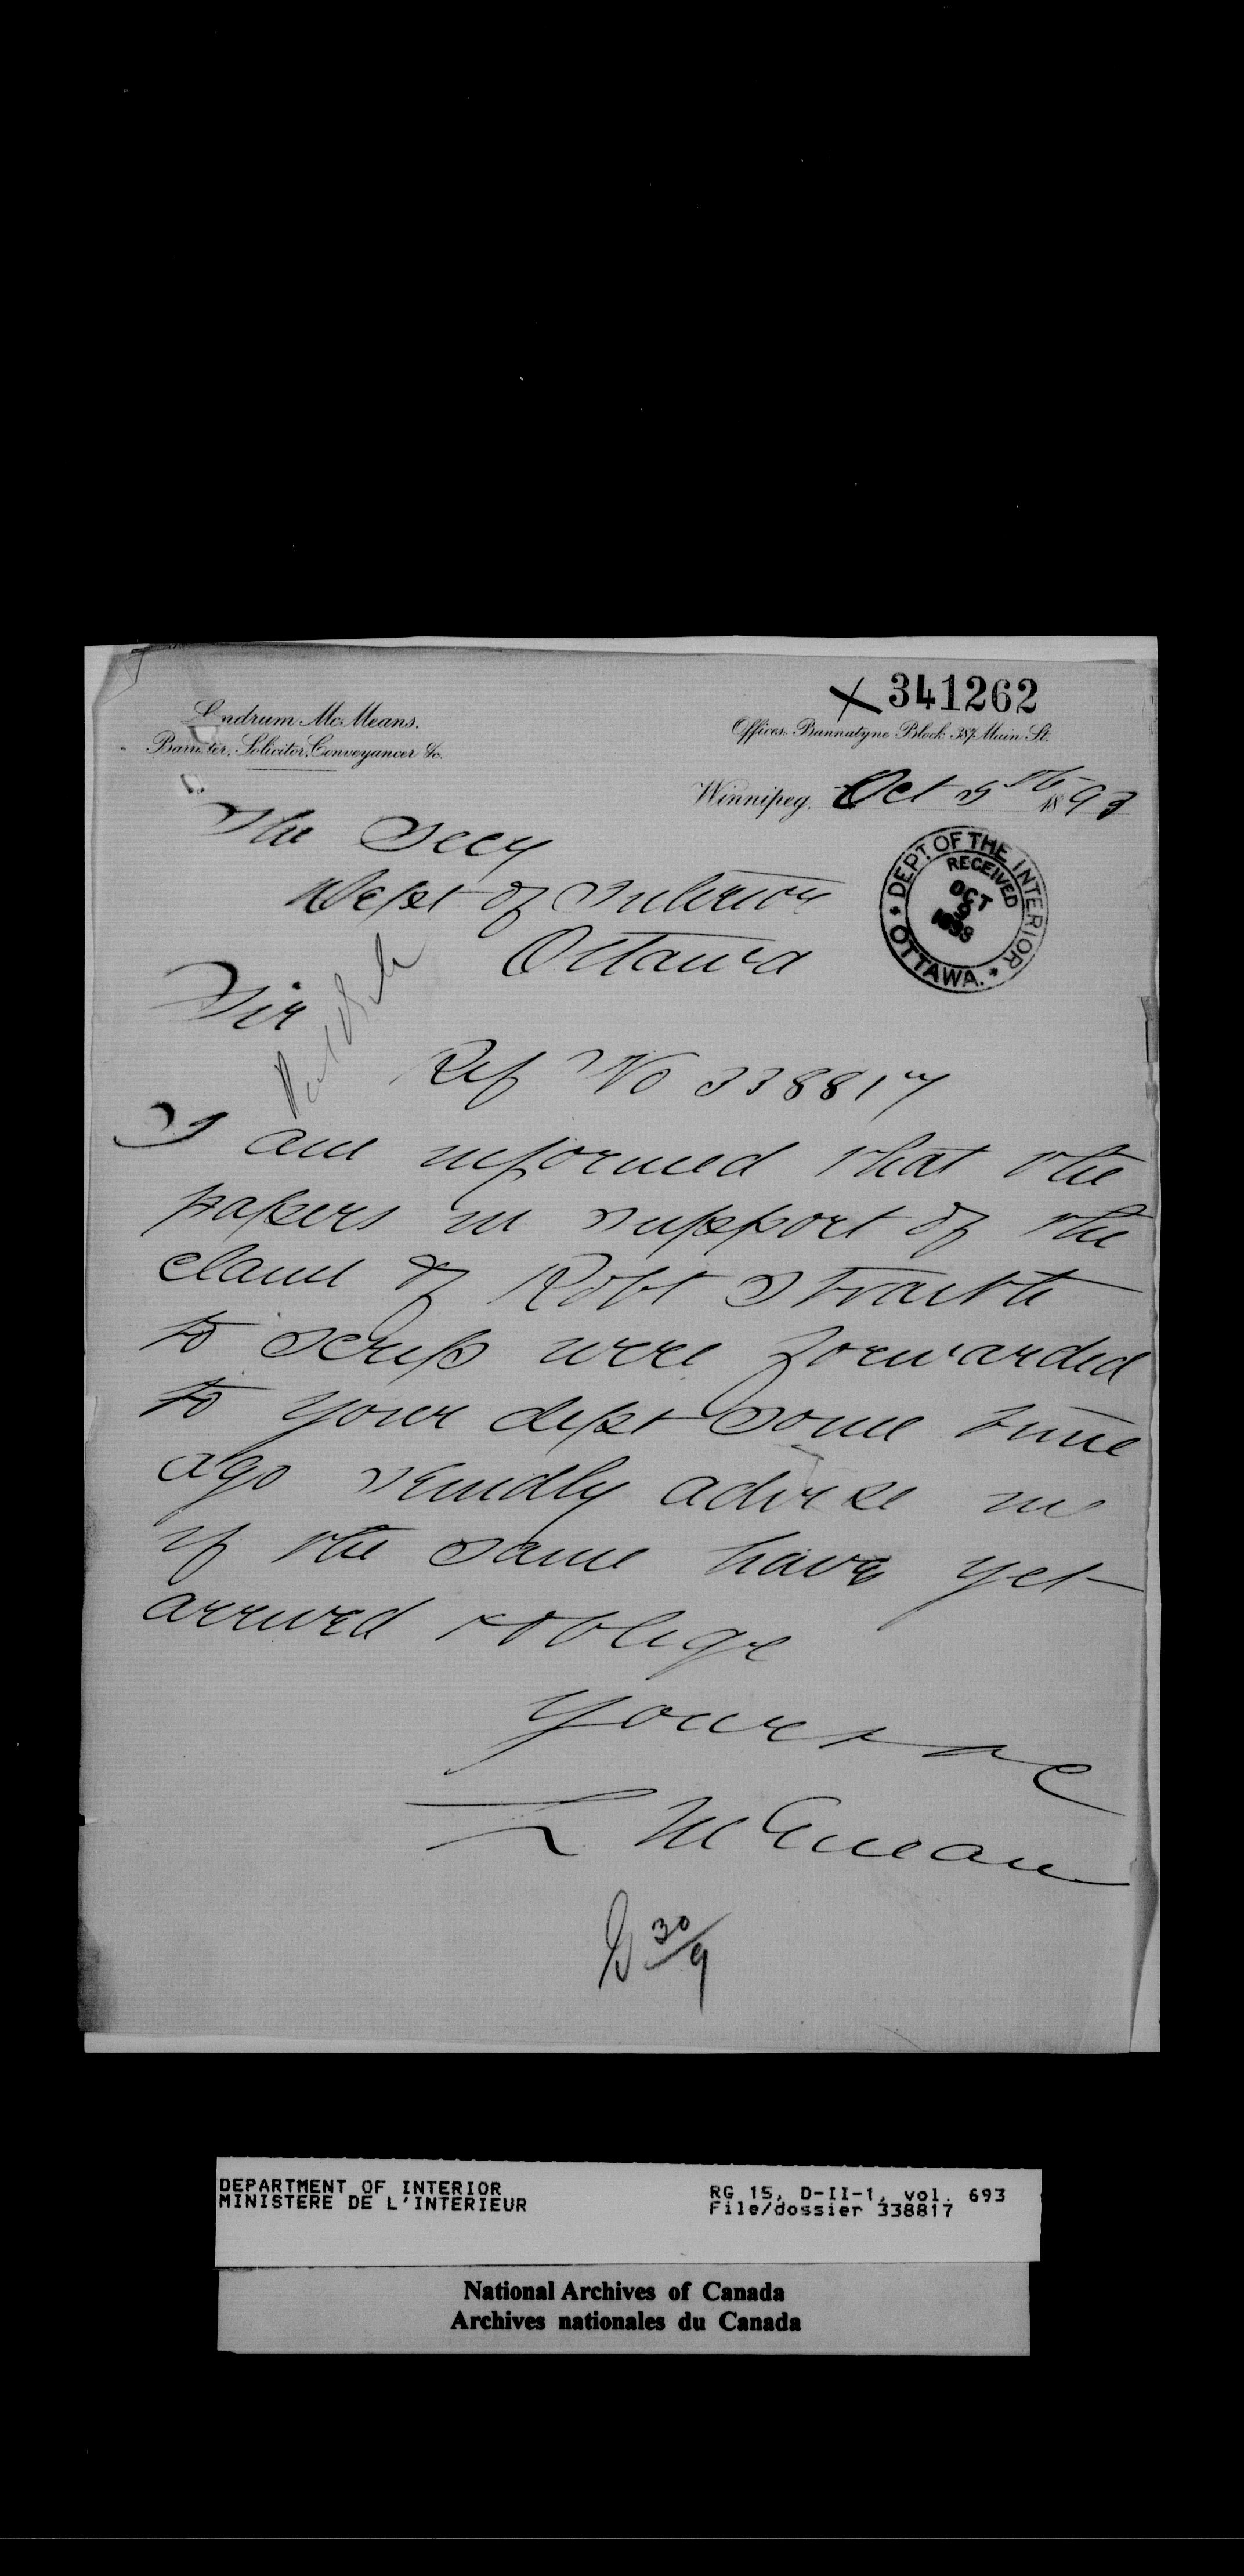 341262
Lendrum Mc.Means.
Barrister, Solicitor, Conveyancer &c.
Offices Bannatyne Block 387 Main St.
Winnipeg, Oct 5th 1893
The Secy
Dept of Interior
Ottawa
DEPT. OF THE INTERIOR
RECEIVED
OCT
9
1893
OTTAWA.
Sir
Ref No 338817
I am informed that the
papers in support of the
claim of Robt Straith
to scrip were forwarded
to your dept some time
ago kindly advise me
if the same have yet
arrived & oblige
Yours
L McMeans
30/9
DEPARTMENT OF INTERIOR
MINISTERE DE L'INTERIEUR
RG 15, D-II-1, vol. 693
File/dossier 338817
National Archives of Canada
Archives nationales du Canada